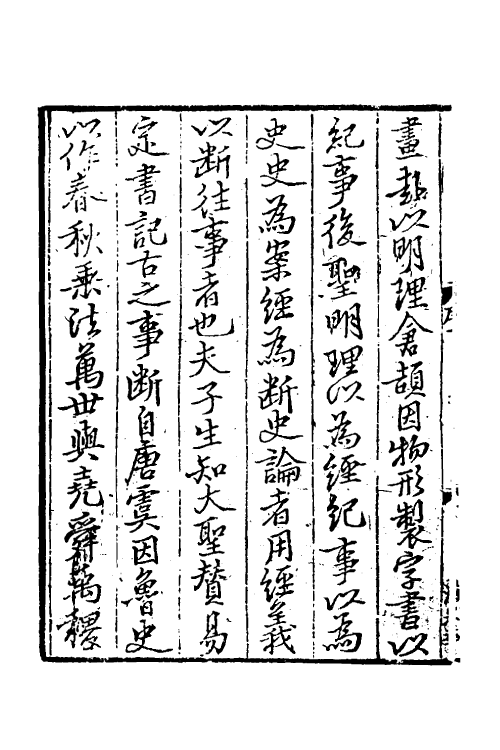 畫卦以明理倉頡因物形製字書以
紀事後聖明理以為經紀事以為
史史為案經為断史論者用經義
以断徃事者也夫子生知大聖賛易
定書記古之事断自唐虞因魯史
以作春秋垂法萬世與堯舜禹稷